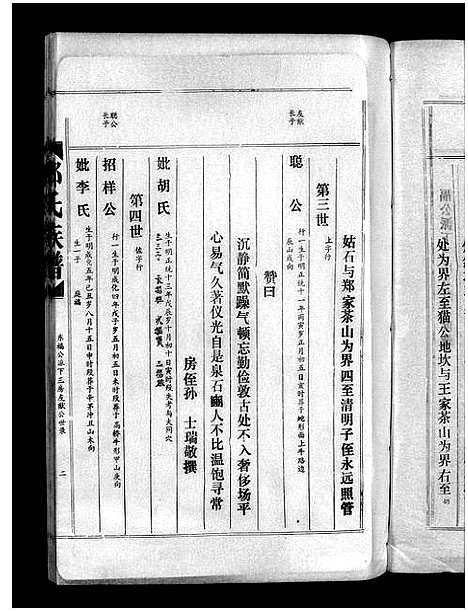 处为界左至猫公地坎与王家茶山为界右至
姑石与郑家茶山为界四至清明子侄永远照管
第三世
上字行
友猷
长子
聪公
行一生于明正统十一年丙寅岁正月初五日亥时葬于蛇形面上牛路边
辰山戌向
赞曰
沉静简默躁气顿忘勤俭敦古处不入奢侈场平
心易气久著仪光自是泉石幽人不比温饱寻常
房侄孙 士瑞敬撰
妣胡氏
生于明正统十三年戊辰岁十月初十日寅时殁失考与夫同穴
第四世
佐字行
聪公
长子
招样公
行一生于明成化四年戊子岁五月初五日未时殁葬于高桥牛形甲山庚向
妣李氏
生于明成化五年己丑岁八月十五日申时殁葬于辛茅冲丑山未向
生一子
氏族谱
东福公派下三房友猷公世录
二